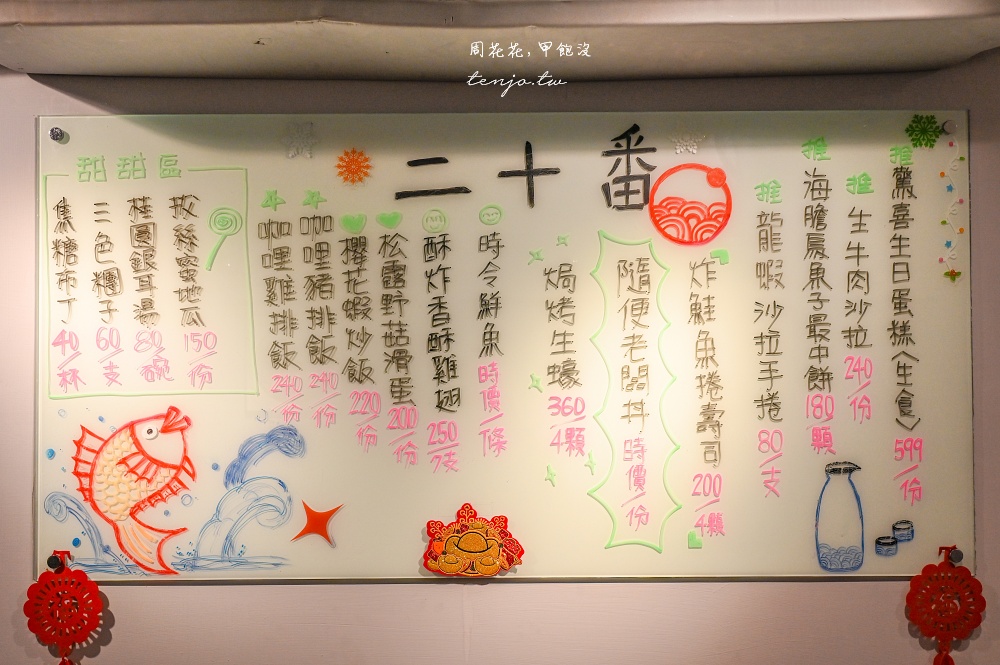 周花花,甲飽沒
tenjo.tw
二十番
推 驚喜生日蛋糕〈生食〉 599/份
推 生牛肉沙拉 240/份
推 海膽鳥魚子最中餅 180/顆
推 龍蝦沙拉手捲 80/支
炸鮭魚捲壽司 200/4顆
隨便老闆丼 時價/份
焗烤生蠔 360/4顆
時令鮮魚 時價/條
酥炸香酥雞翅 250/7支
松露野菇滑蛋 200/份
櫻花蝦炒飯 220/份
咖哩豬排飯 240/份
咖哩雞排飯 240/份
甜甜區
拔絲蜜地瓜 150/份
桂圓銀耳湯 80/碗
三色糰子 60/支
焦糖布丁 40/杯